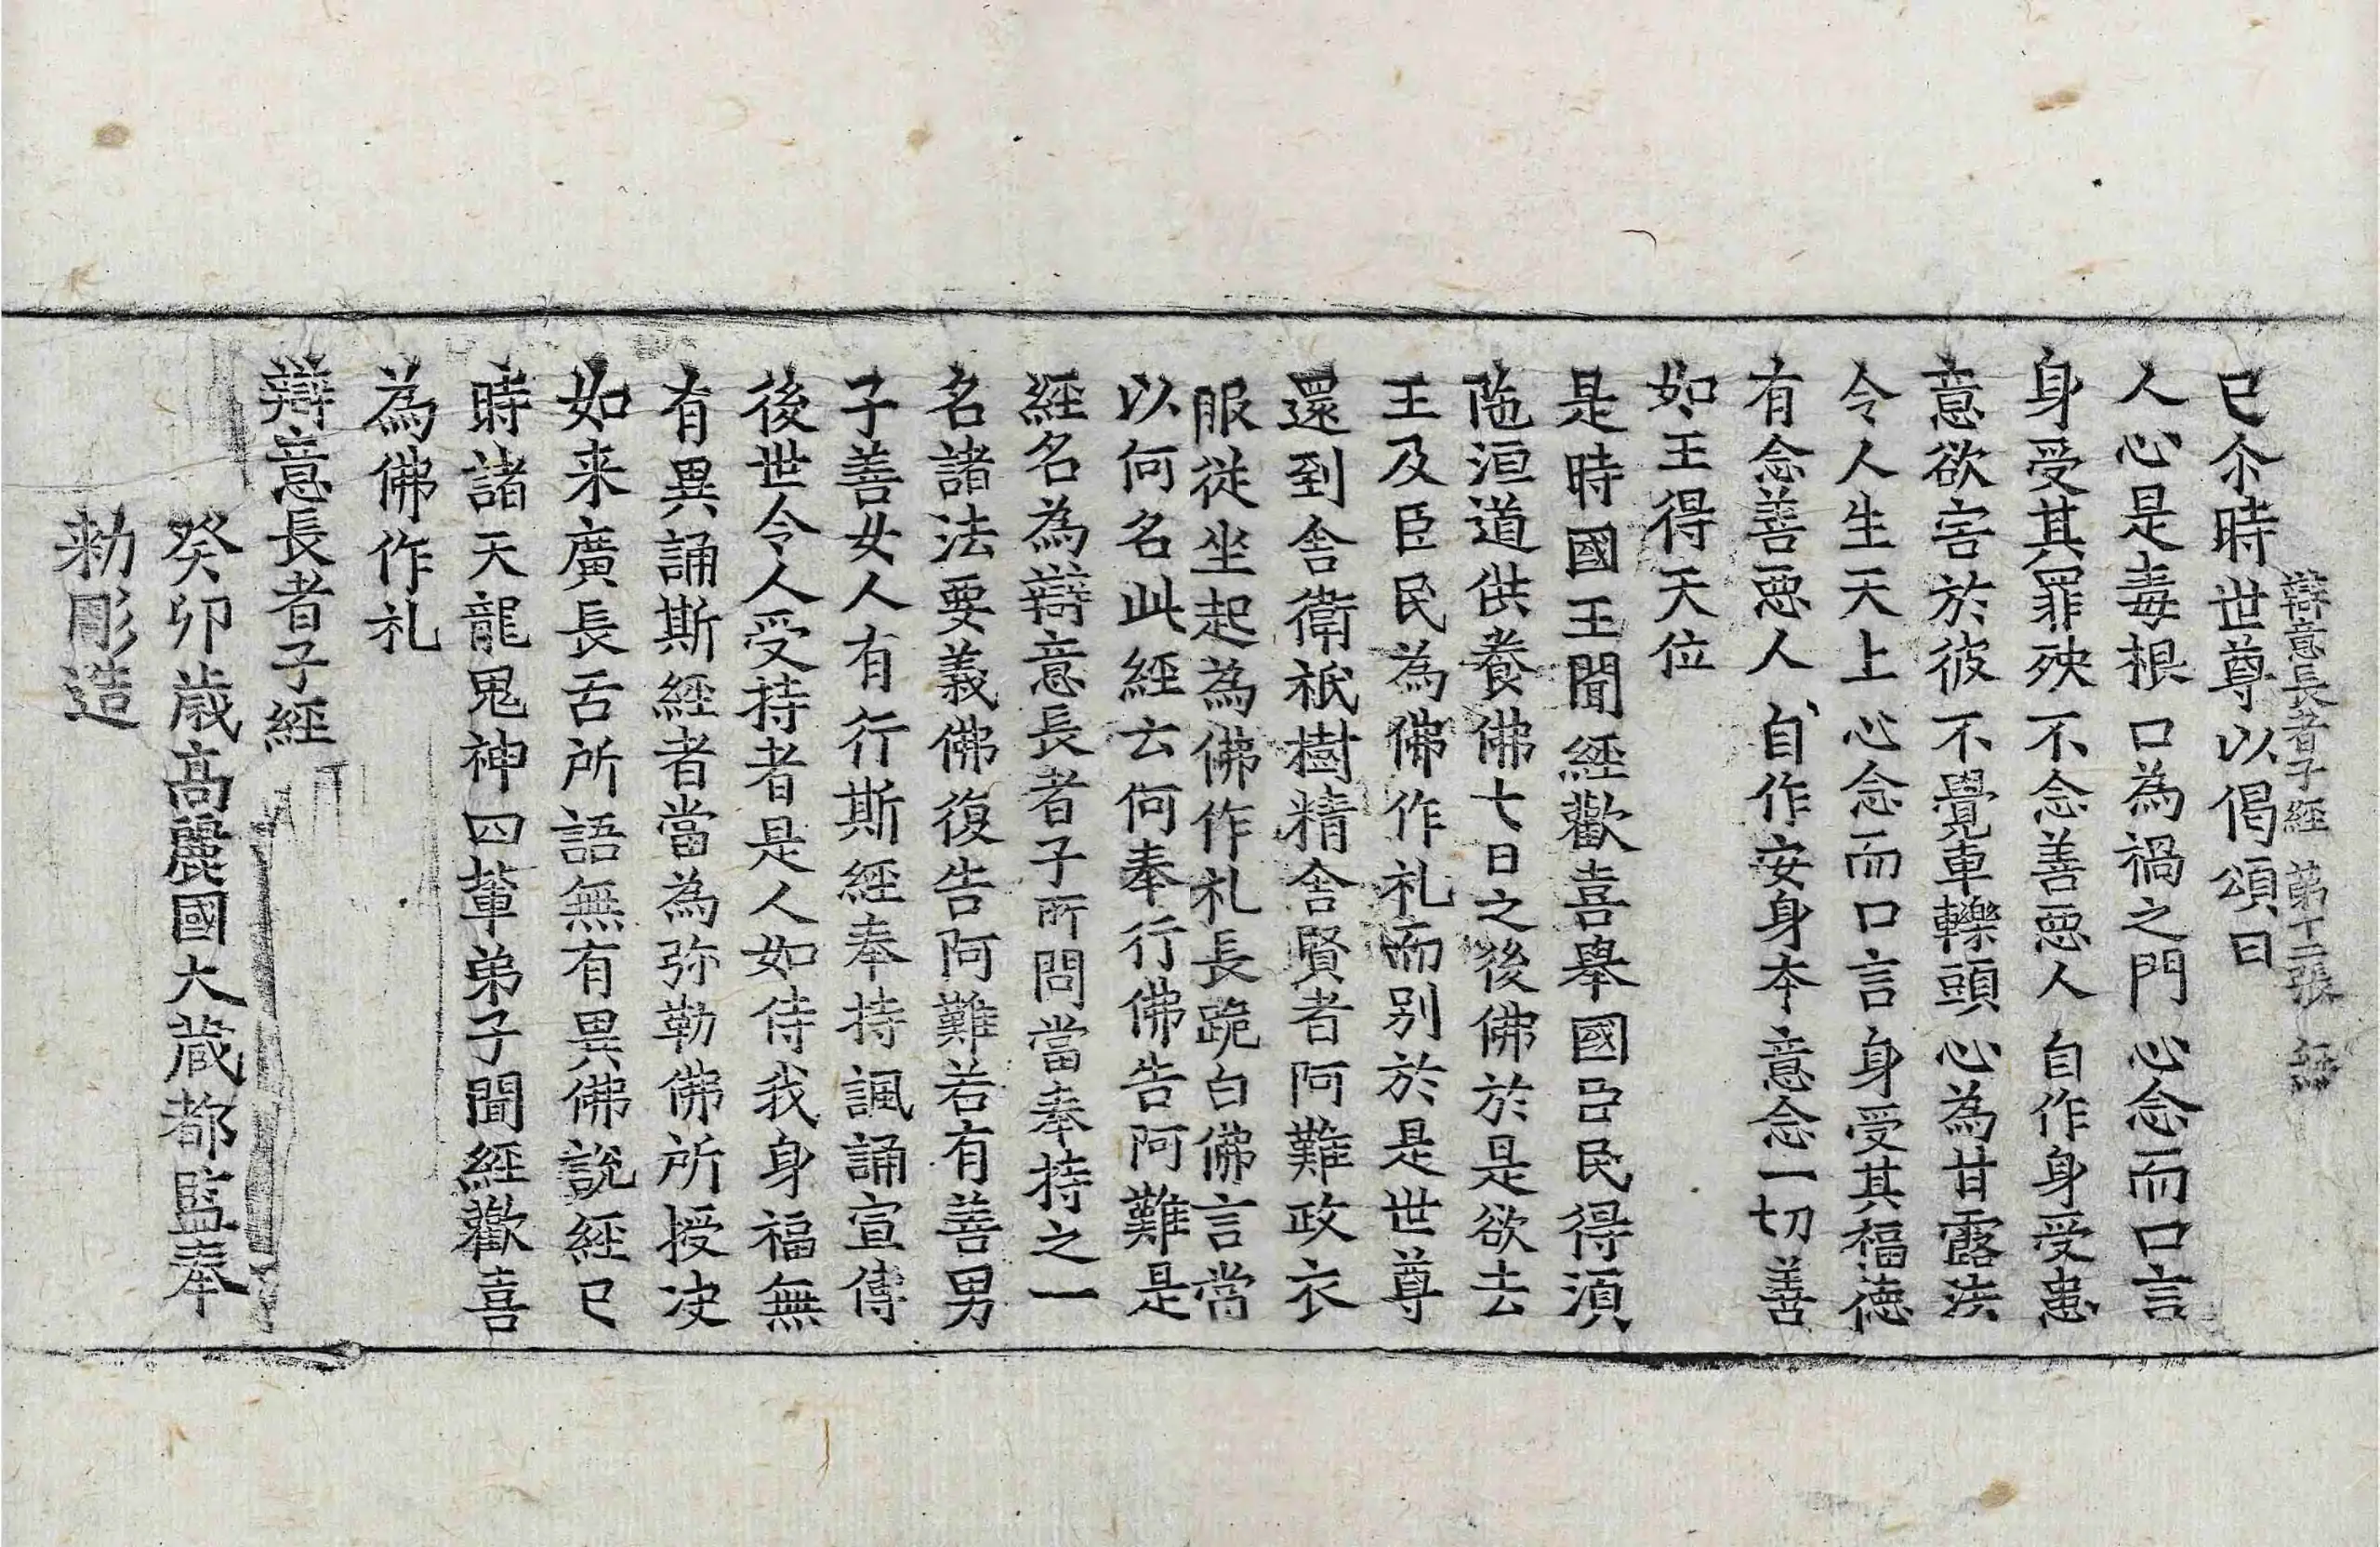 辯意長者子經 第十二張
已尒時世尊以偈頌曰
人心是毒根 口為禍之門 心念而口言
身受其罪殃 不念善惡人 自作身受患
意欲害於彼 不覺車轢頭 心為甘露法
令人生天上 心念而口言 身受其福德
有念善惡人 自作安身夲 意念一切善
如王得天位
是時國王聞經歡喜舉國臣民得湏
陁洹道供養佛七日之後佛於是欲去
王及臣民為佛作礼而別於是世尊
還到舍衛祇樹精舍賢者阿難政衣
服從坐起為佛作礼長跪白佛言當
以何名此經云何奉行佛告阿難是
經名為辯意長者子所問當奉持之一
名諸法要義佛復告阿難若有善男
子善女人有行斯經奉持諷誦宣傳
後世令人受持者是人如侍我身福無
有異誦斯經者當為弥勒佛所授决
如来廣長舌所語無有異佛說經已
時諸天龍鬼神四輩弟子聞經歡喜
為佛作礼
辯意長者子經
癸卯歲髙麗國大藏都監奉
勑彫造